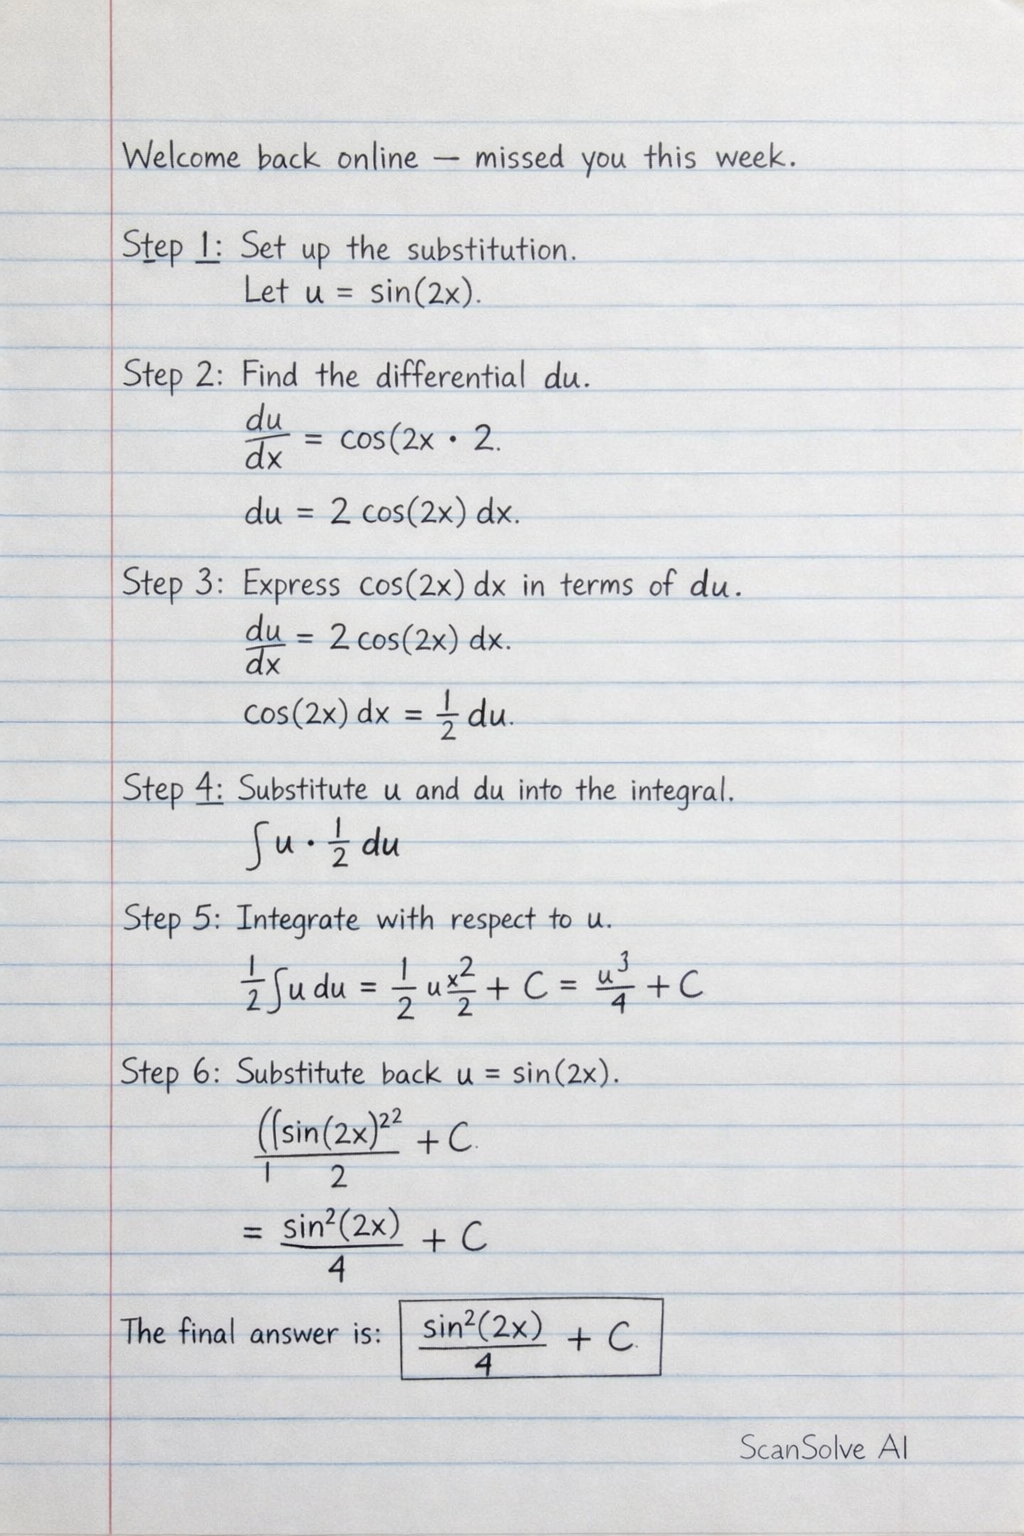 Welcome back online — missed you this week.
Step 1: Set up the substitution.
Let u = sin(2x).
Step 2: Find the differential du.
du/dx = cos(2x · 2.
du = 2 cos(2x) dx.
Step 3: Express cos(2x) dx in terms of du.
du/dx = 2 cos(2x) dx.
cos(2x) dx = 1/2 du.
Step 4: Substitute u and du into the integral.
∫u · 1/2 du
Step 5: Integrate with respect to u.
1/2 ∫u du = 1/2 u x²/2 + C = u³/4 + C
Step 6: Substitute back u = sin(2x).
((sin(2x)²² / 1 2 + C.
= sin²(2x)/4 + C
The final answer is: sin²(2x)/4 + C.
ScanSolve AI